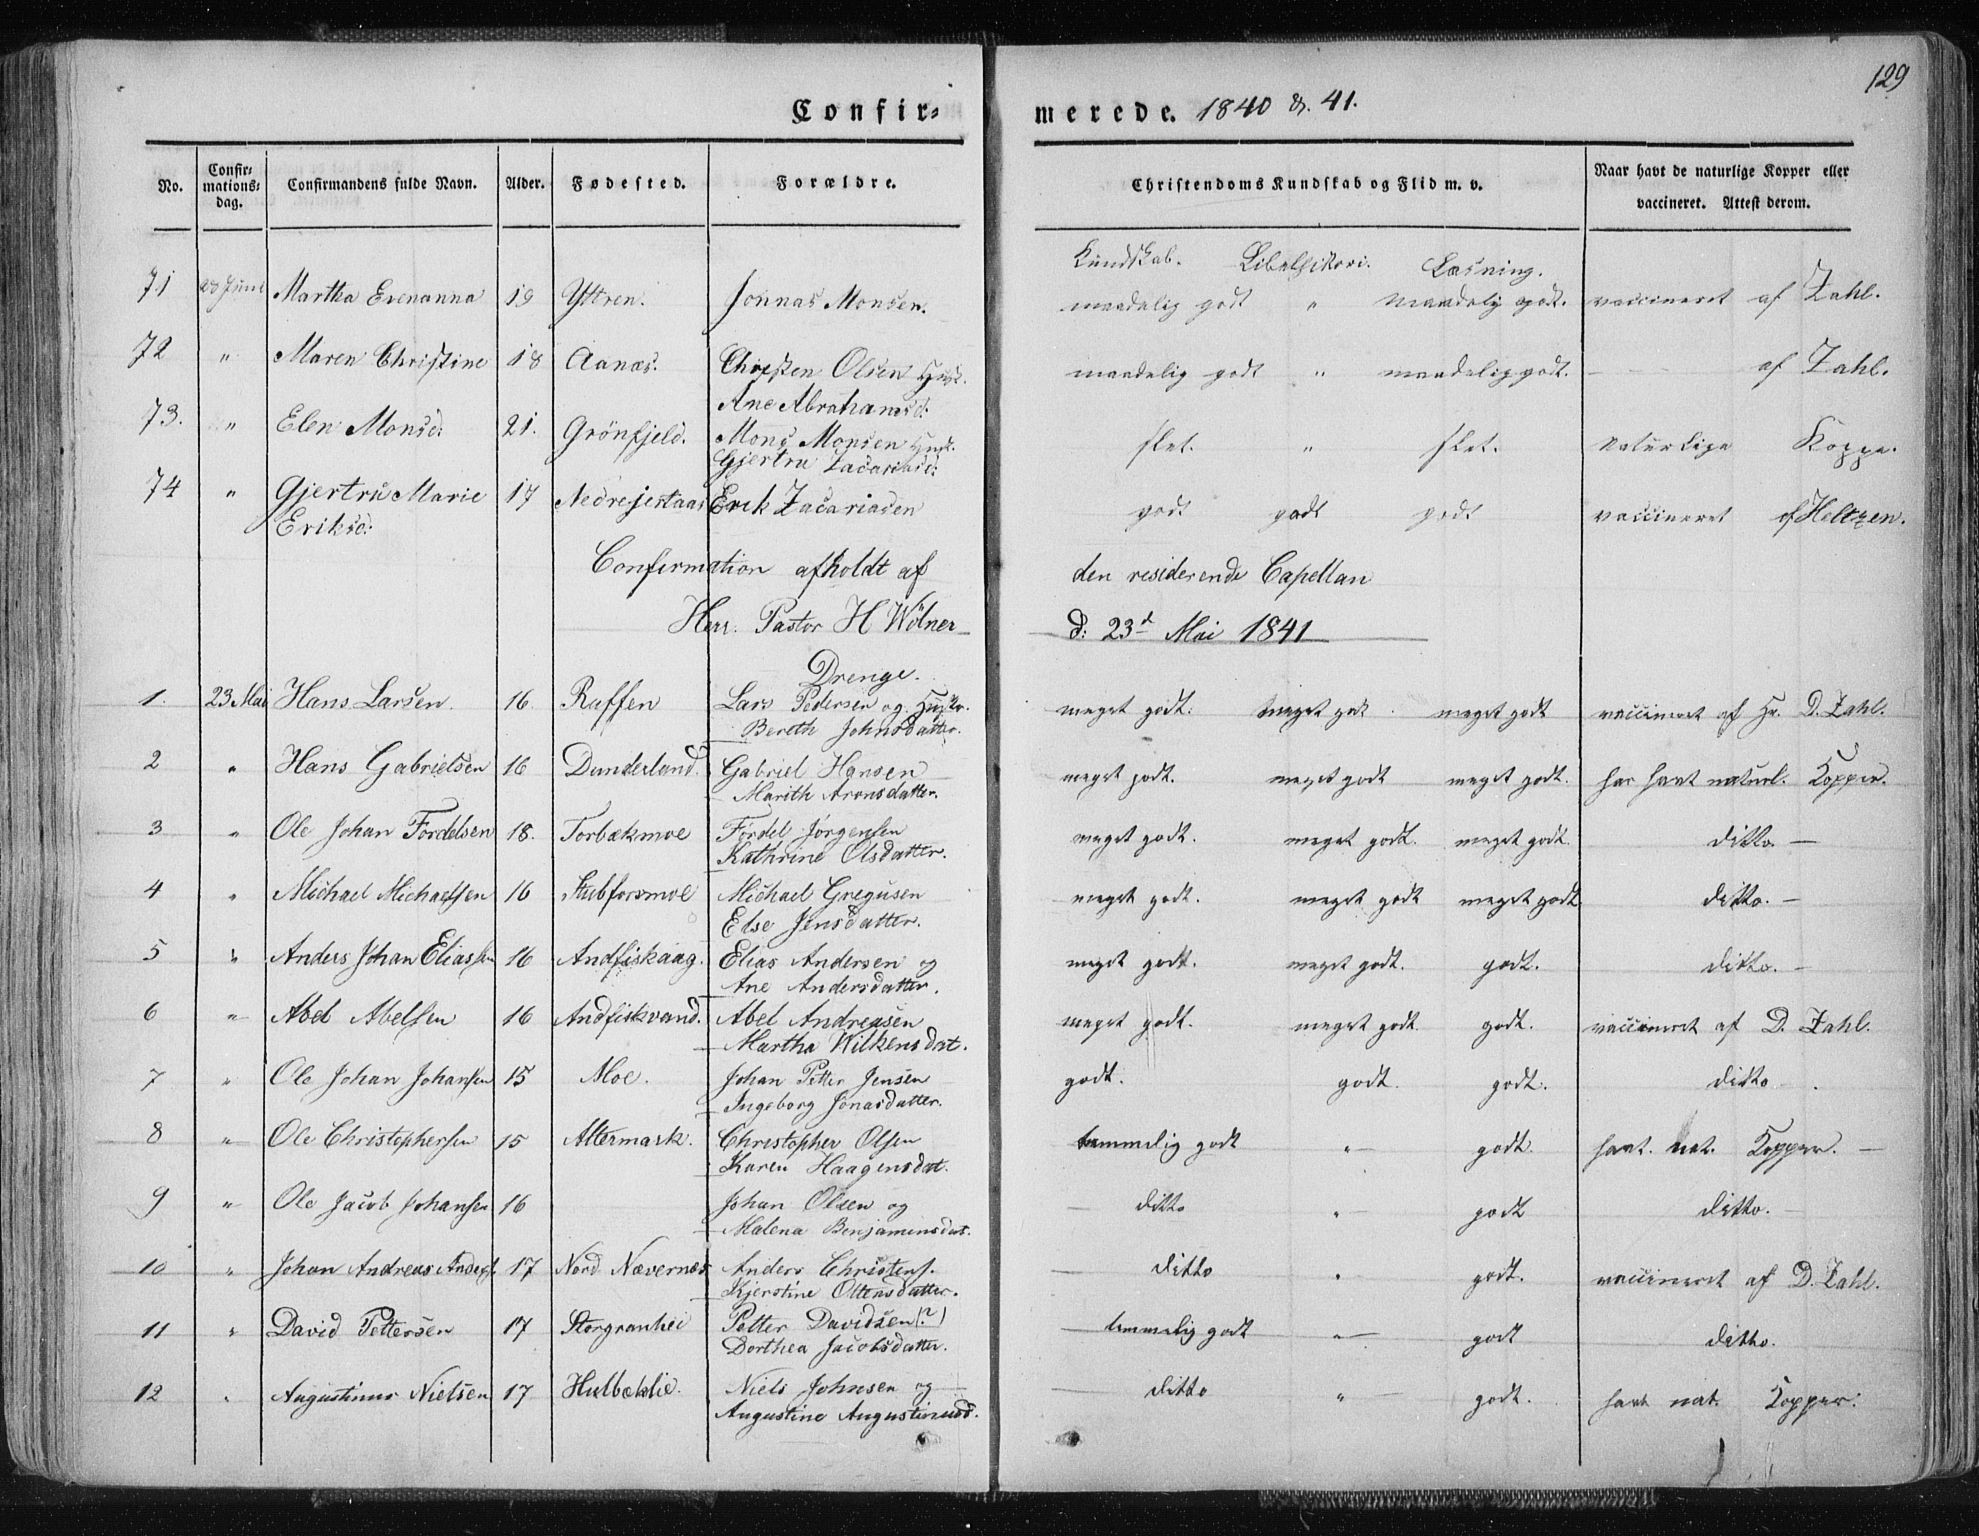 129
Confirmerede. 1840 & 41.
No. Confirmationsdag. Confirmandens fulde Navn. Alder. Fødested. Forældre. Christendoms Kundskab og Flid m. v. Naar havt de naturlige Kopper eller vaccineret. Attest derom.
Kundskab. Bibelhistori. Læsning.
71 Juni Martha Evenanna 19 Yttren. Jonnas Monsen. maadelig godt " maadelig godt. vaccineret af Zahl.
72 " Maren Christine 18 Aanæs. Christen Olsen Hust. maadelig godt " maadelig godt. — af Zahl.
Ane Abrahamsd:
73. " Elen Monsd: 21. Grönfjeld. Mons Monsen Hust. slet. " slet. naturlige Koppe.
Gjertru Zacariasd:
74 " Gjertru Marie 17 Nedrejestaas Erik Zacariasen godt godt godt vaccineret af Heltzen.
Eriksd:
Confirmation afholdt af den residerende Capellan
Herr. Pastor H Wölner d: 23d Mai 1841
Drenge.
1. 23 Mai Hans Larsen. 16. Raffen Lars Pedersen og Hustr. meget godt. meget godt. meget godt vaccineret af Hr. D. Zahl.
Bereth Johnsdatter.
2 " Hans Gabrielsen 16 Dunderland. Gabriel Hansen meget godt. meget godt meget godt. har havt naturl. Kopper.
Marith Aronsdatter.
3 " Ole Johan Fordelsen 18. Torbækmoe Fordel Jörgensen meget godt. meget godt. meget godt ditto. —
Kathrine Olsdatter.
4 " Michael Michaelsen 16 Stubforsmoe Michael Gregusen meget godt. meget godt meget godt. ditto. —
Else Jensdatter.
5 " Anders Johan Eliassen 16 Andfiskaag. Elias Andersen og meget godt. meget godt. godt. ditto. —
Ane Andersdatter.
6 " Abel Abelsen 16 Andfiskvand. Abel Andreasen meget godt. meget godt godt. vaccineret af D. Zahl.
Martha Wilkensdat.
7 " Ole Johan Johansen 15 Moe. Johan Petter Jensen godt. godt. godt. ditto
Ingeborg Jonasdatter.
8 " Ole Christophersen 15 Altermark. Christopher Olsen temmelig godt " godt. havt. nat. Kopper. —
Karen Haagensdat.
9 " Ole Jacob Johansen 16 Johan Olsen og ditto " godt ditto. —
Malena Benjaminsdat.
10 " Johan Andreas Anders. 17 Nord Nævernæs Anders Christens. ditto " godt. vaccineret af D. Zahl.
Kjerstine Ottensdatter.
11 " David Pettersen 17 Storgranhei Petter Davidsen (?) temmelig godt " godt ditto.
Dorthea Jacobsdatter.
12 " Augustinus Nielsen 17 Hulbæklie. Niels Johnsen og ditto " godt. havt nat. Kopper.
Augustine Augustinusd.